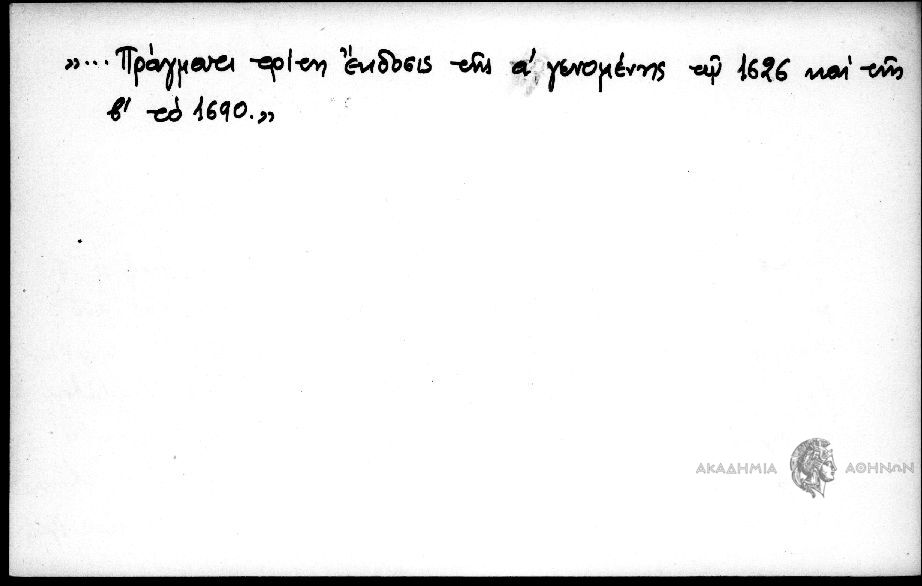 „... Πράγματι τρίτη ἔκδοσις τῆς α' γενομένης τῷ 1626 καί τῆς
β' τό 1690.„
ΑΚΑΔΗΜΙΑ ΑΘΗΝΩΝ